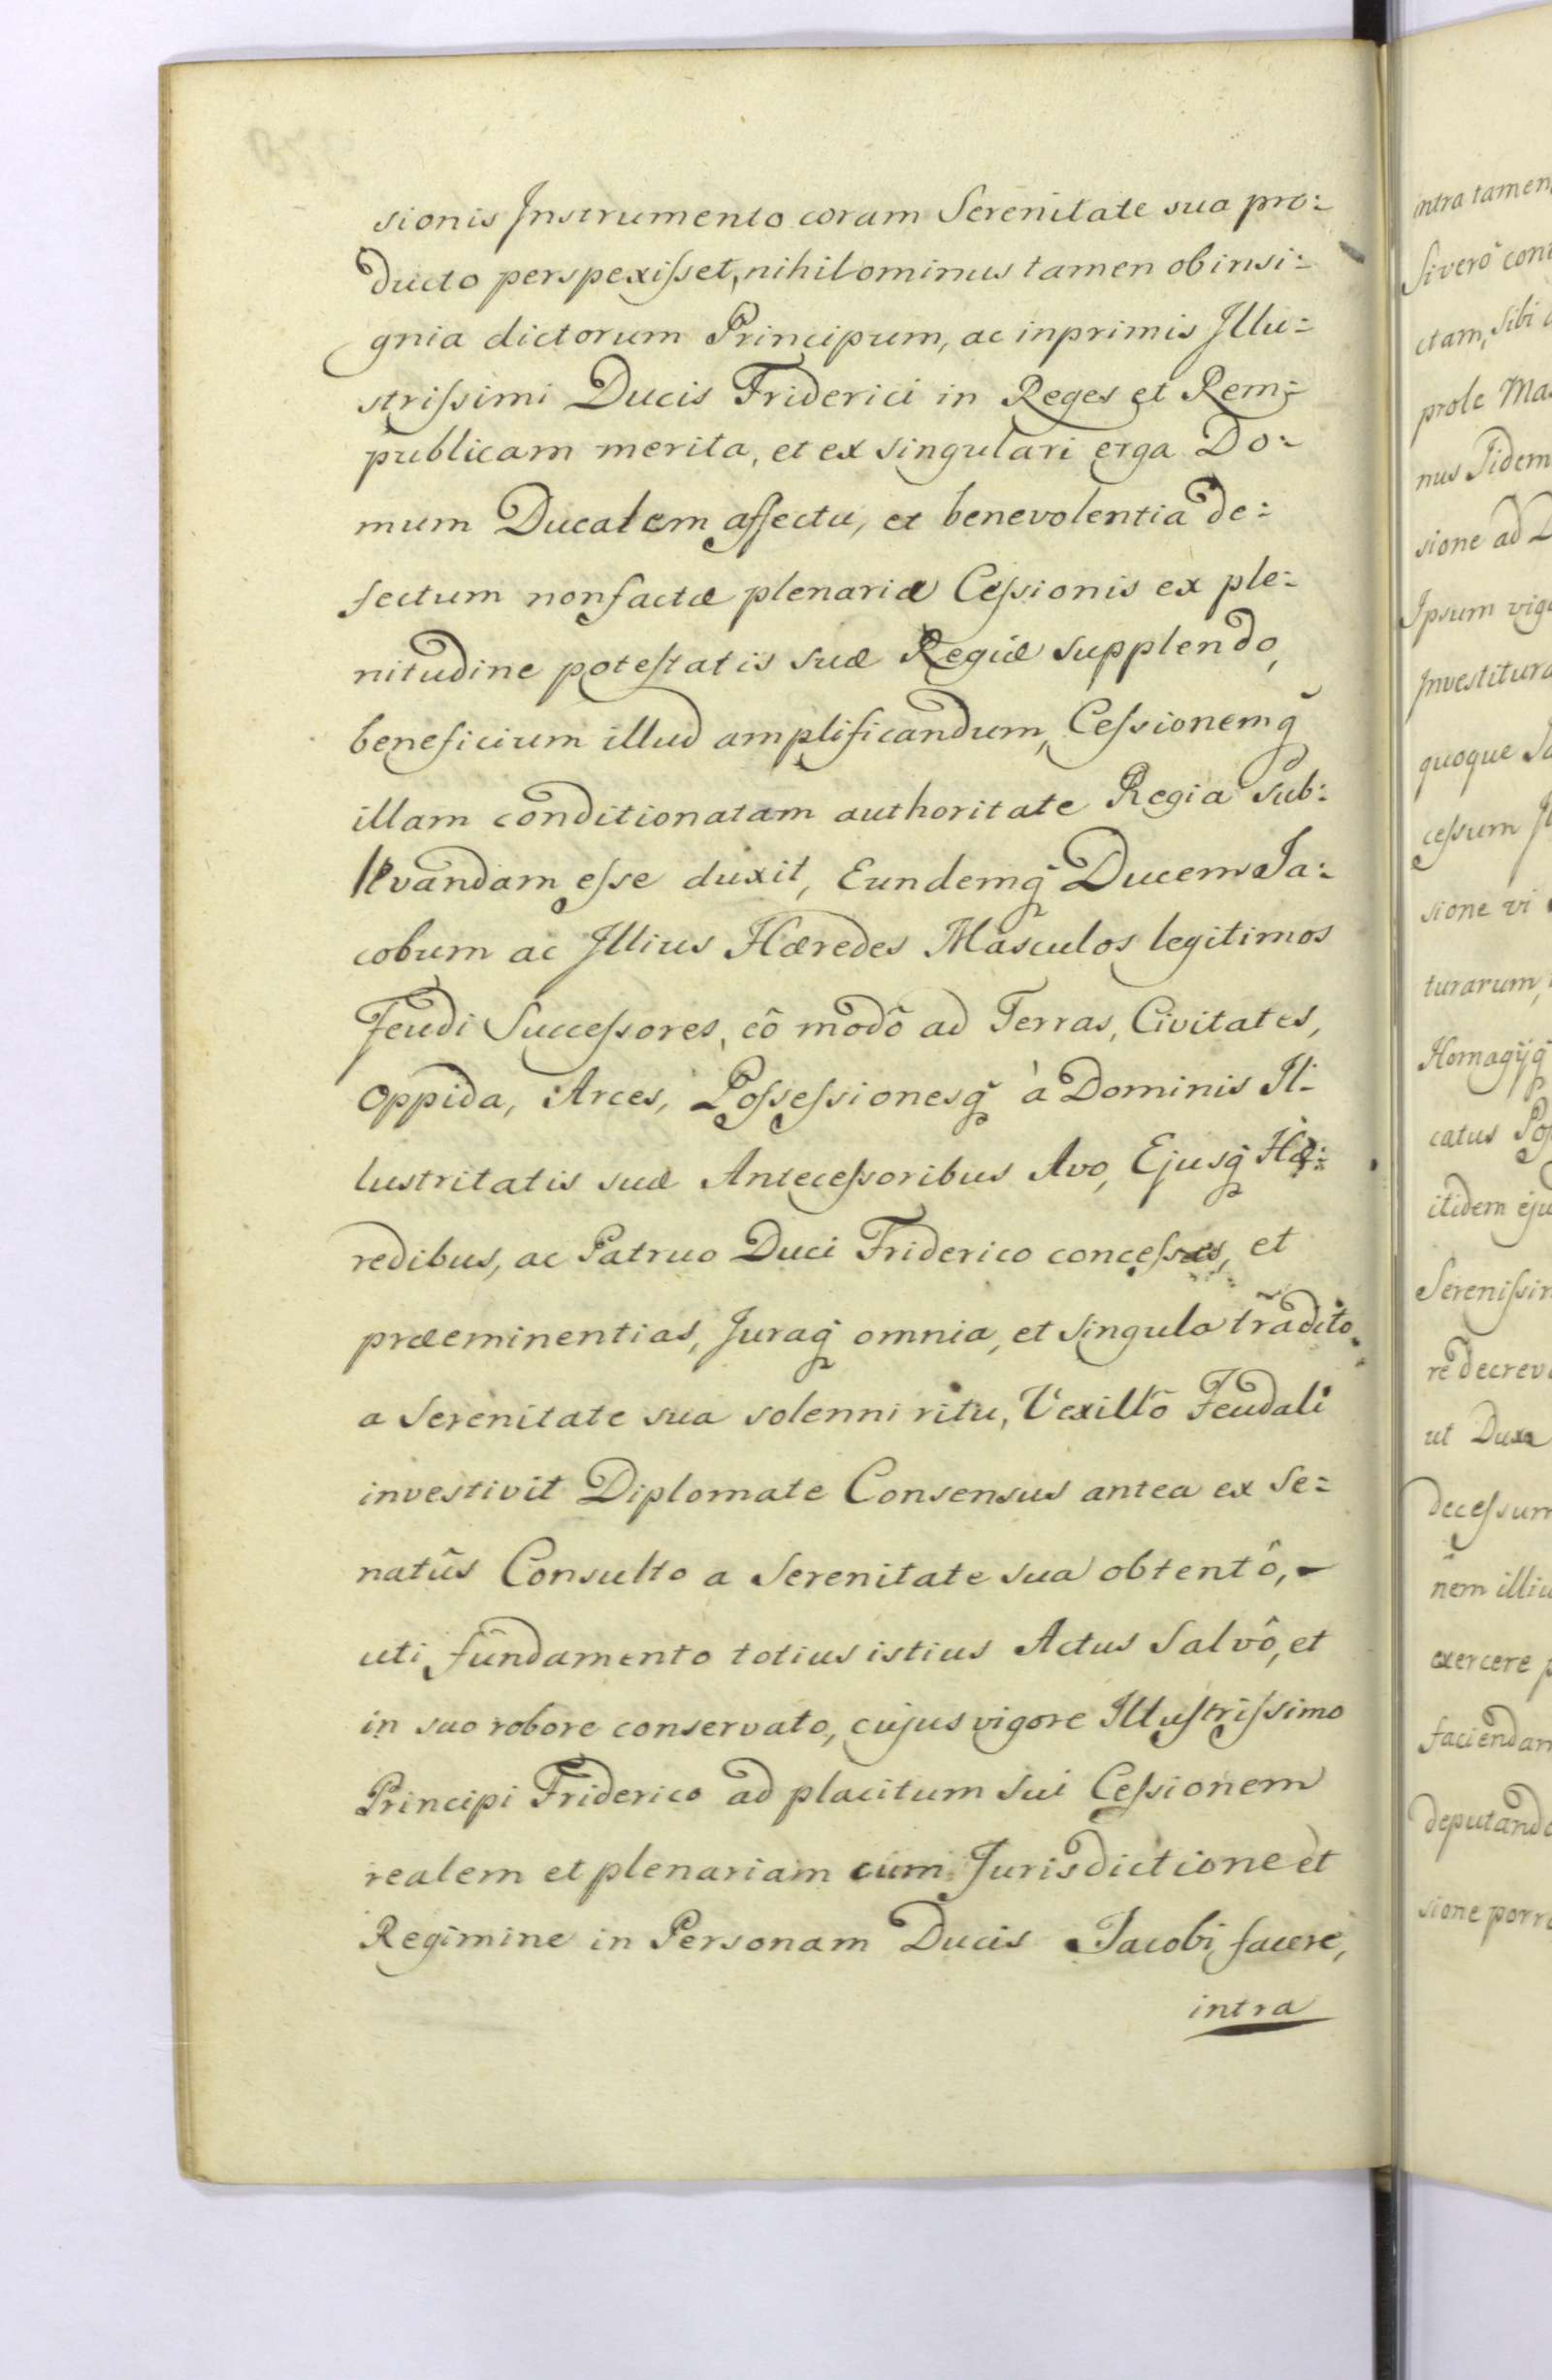 sionis Instrumento coram Serenitate sua pro:
ducto perspexisset, nihilominus tamen ob insi:
gnia dictorum Principum, ac inprimis Illu:
strissimi Ducis Friderici in Reges et Rem:
publicam merita, et ex singulari erga Do:
mum Ducalem affectu, et benevolentia de:
fectum non factæ plenariæ Cessionis ex ple:
nitudine potestatis suæ Regiæ supplendo,
beneficium illud amplificandum, Cessionemq̃
illam conditionatam authoritate Regia sub:
levandam esse duxit, Eundemq̃ Ducem Ja:
cobum ac Illius Hæredes Masculos legitimos
Feudi Successores, eô modô ad Terras, Civitates,
Oppida, Arces, Possessionesq̃ à Dominis Il:
lustritatis suæ Antecessoribus Avo, Ejusq̃ Hæ:
redibus, ac Patruo Duci Friderico concessas, et
præeminentias, Juraq̃ omnia, et singula tradito
a Serenitate sua solenni ritu, Vexillô Feudali
investivit Diplomate Consensus antea ex Se:
natûs Consulto a Serenitate sua obtentô,
uti fundamento totius istius Actus Salvô, et
in suo robore conservato, cujus vigore Illustrissimo
Principi Friderico ad placitum sui Cessionem
realem et plenariam cum Jurisdictione et
Regimine in Personam Ducis Jacobi facere,
intra
intra tamen
Si verò
ctam, sibi
prole
nus Fidem
sione ad
Ipsum
quoque
cessum
sione vi
turarum,
catus
itidem
ut Dux
nem
exercere
sione